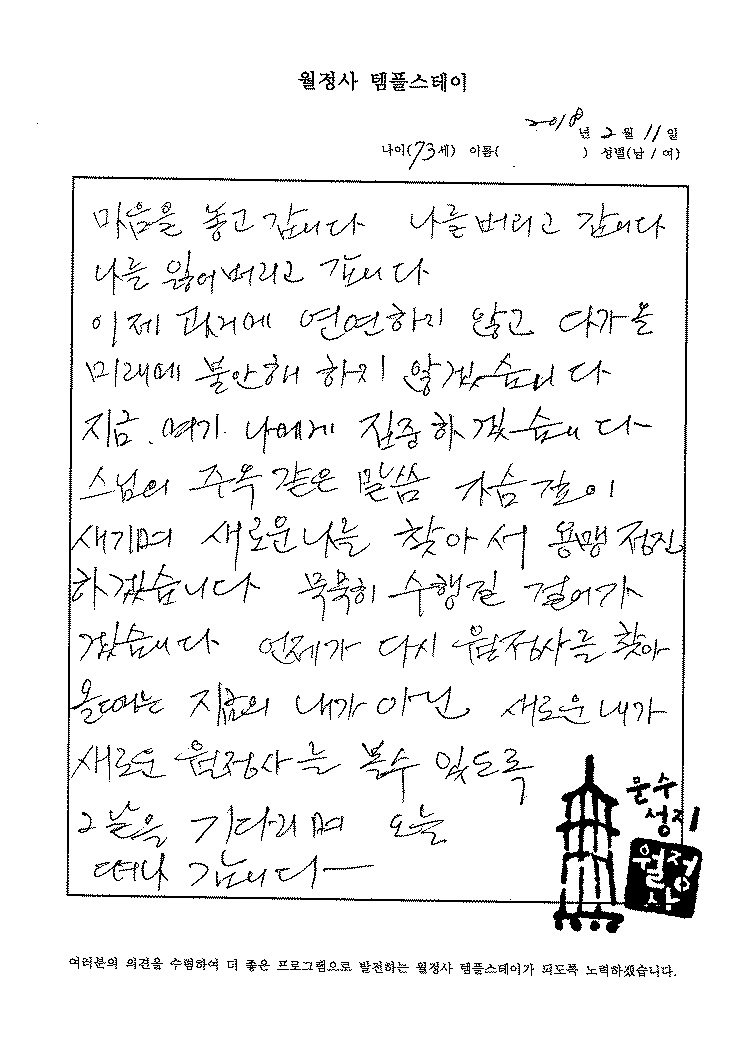 월정사 템플스테이
2018년 2월 11일
나이(73세) 이름( ) 성별(남 / 여)
마음을 놓고 갑니다 나를 버리고 갑니다
나를 잃어버리고 갑니다
이제 과거에 연연하지 않고 다가올
미래에 불안해 하지 않겠습니다
지금. 여기. 나에게 집중하겠습니다
스님의 주옥 같은 말씀 가슴 깊이
새기며 새로운 나를 찾아서 용맹 정진
하겠습니다 묵묵히 수행길 걸어가
겠습니다 언제가 다시 월정사를 찾아
올때는 지금의 내가 아닌 새로운 내가
새로운 월정사를 볼수 있도록
그날을 기다리며 오늘
떠나 갑니다
문수
성지
월정
사
여러분의 의견을 수렴하여 더 좋은 프로그램으로 발전하는 월정사 템플스테이가 되도록 노력하겠습니다.